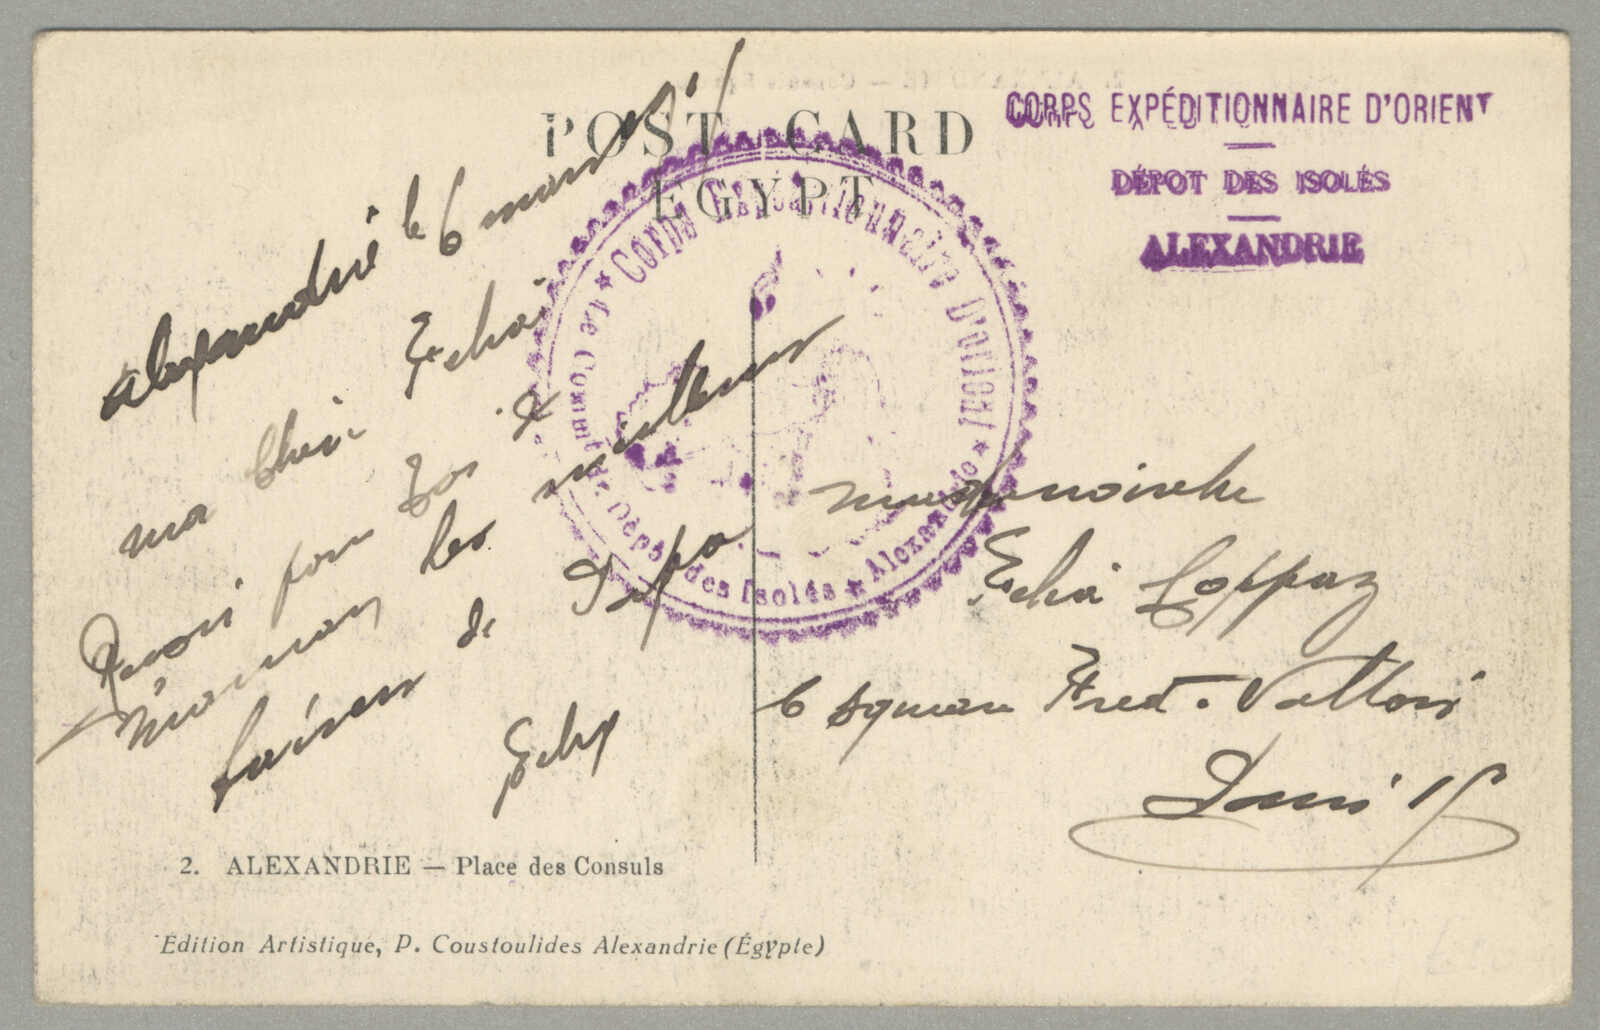 POST CARD
EGYPT
CORPS EXPÉDITIONNAIRE D'ORIENT
DÉPOT DES ISOLÉS
ALEXANDRIE
★ Corps Expéditionnaire D'orient ★
Le Commt du Dépôt des Isolés ★ Alexandrie
Alexandrie le 6 mars
ma chère
Reçois pour toi &
maman les meilleurs
baisers de Papa
Mademoiselle
Coppaz
6 square
Paris 15
2. ALEXANDRIE — Place des Consuls
Edition Artistique, P. Coustoulides Alexandrie (Égypte)